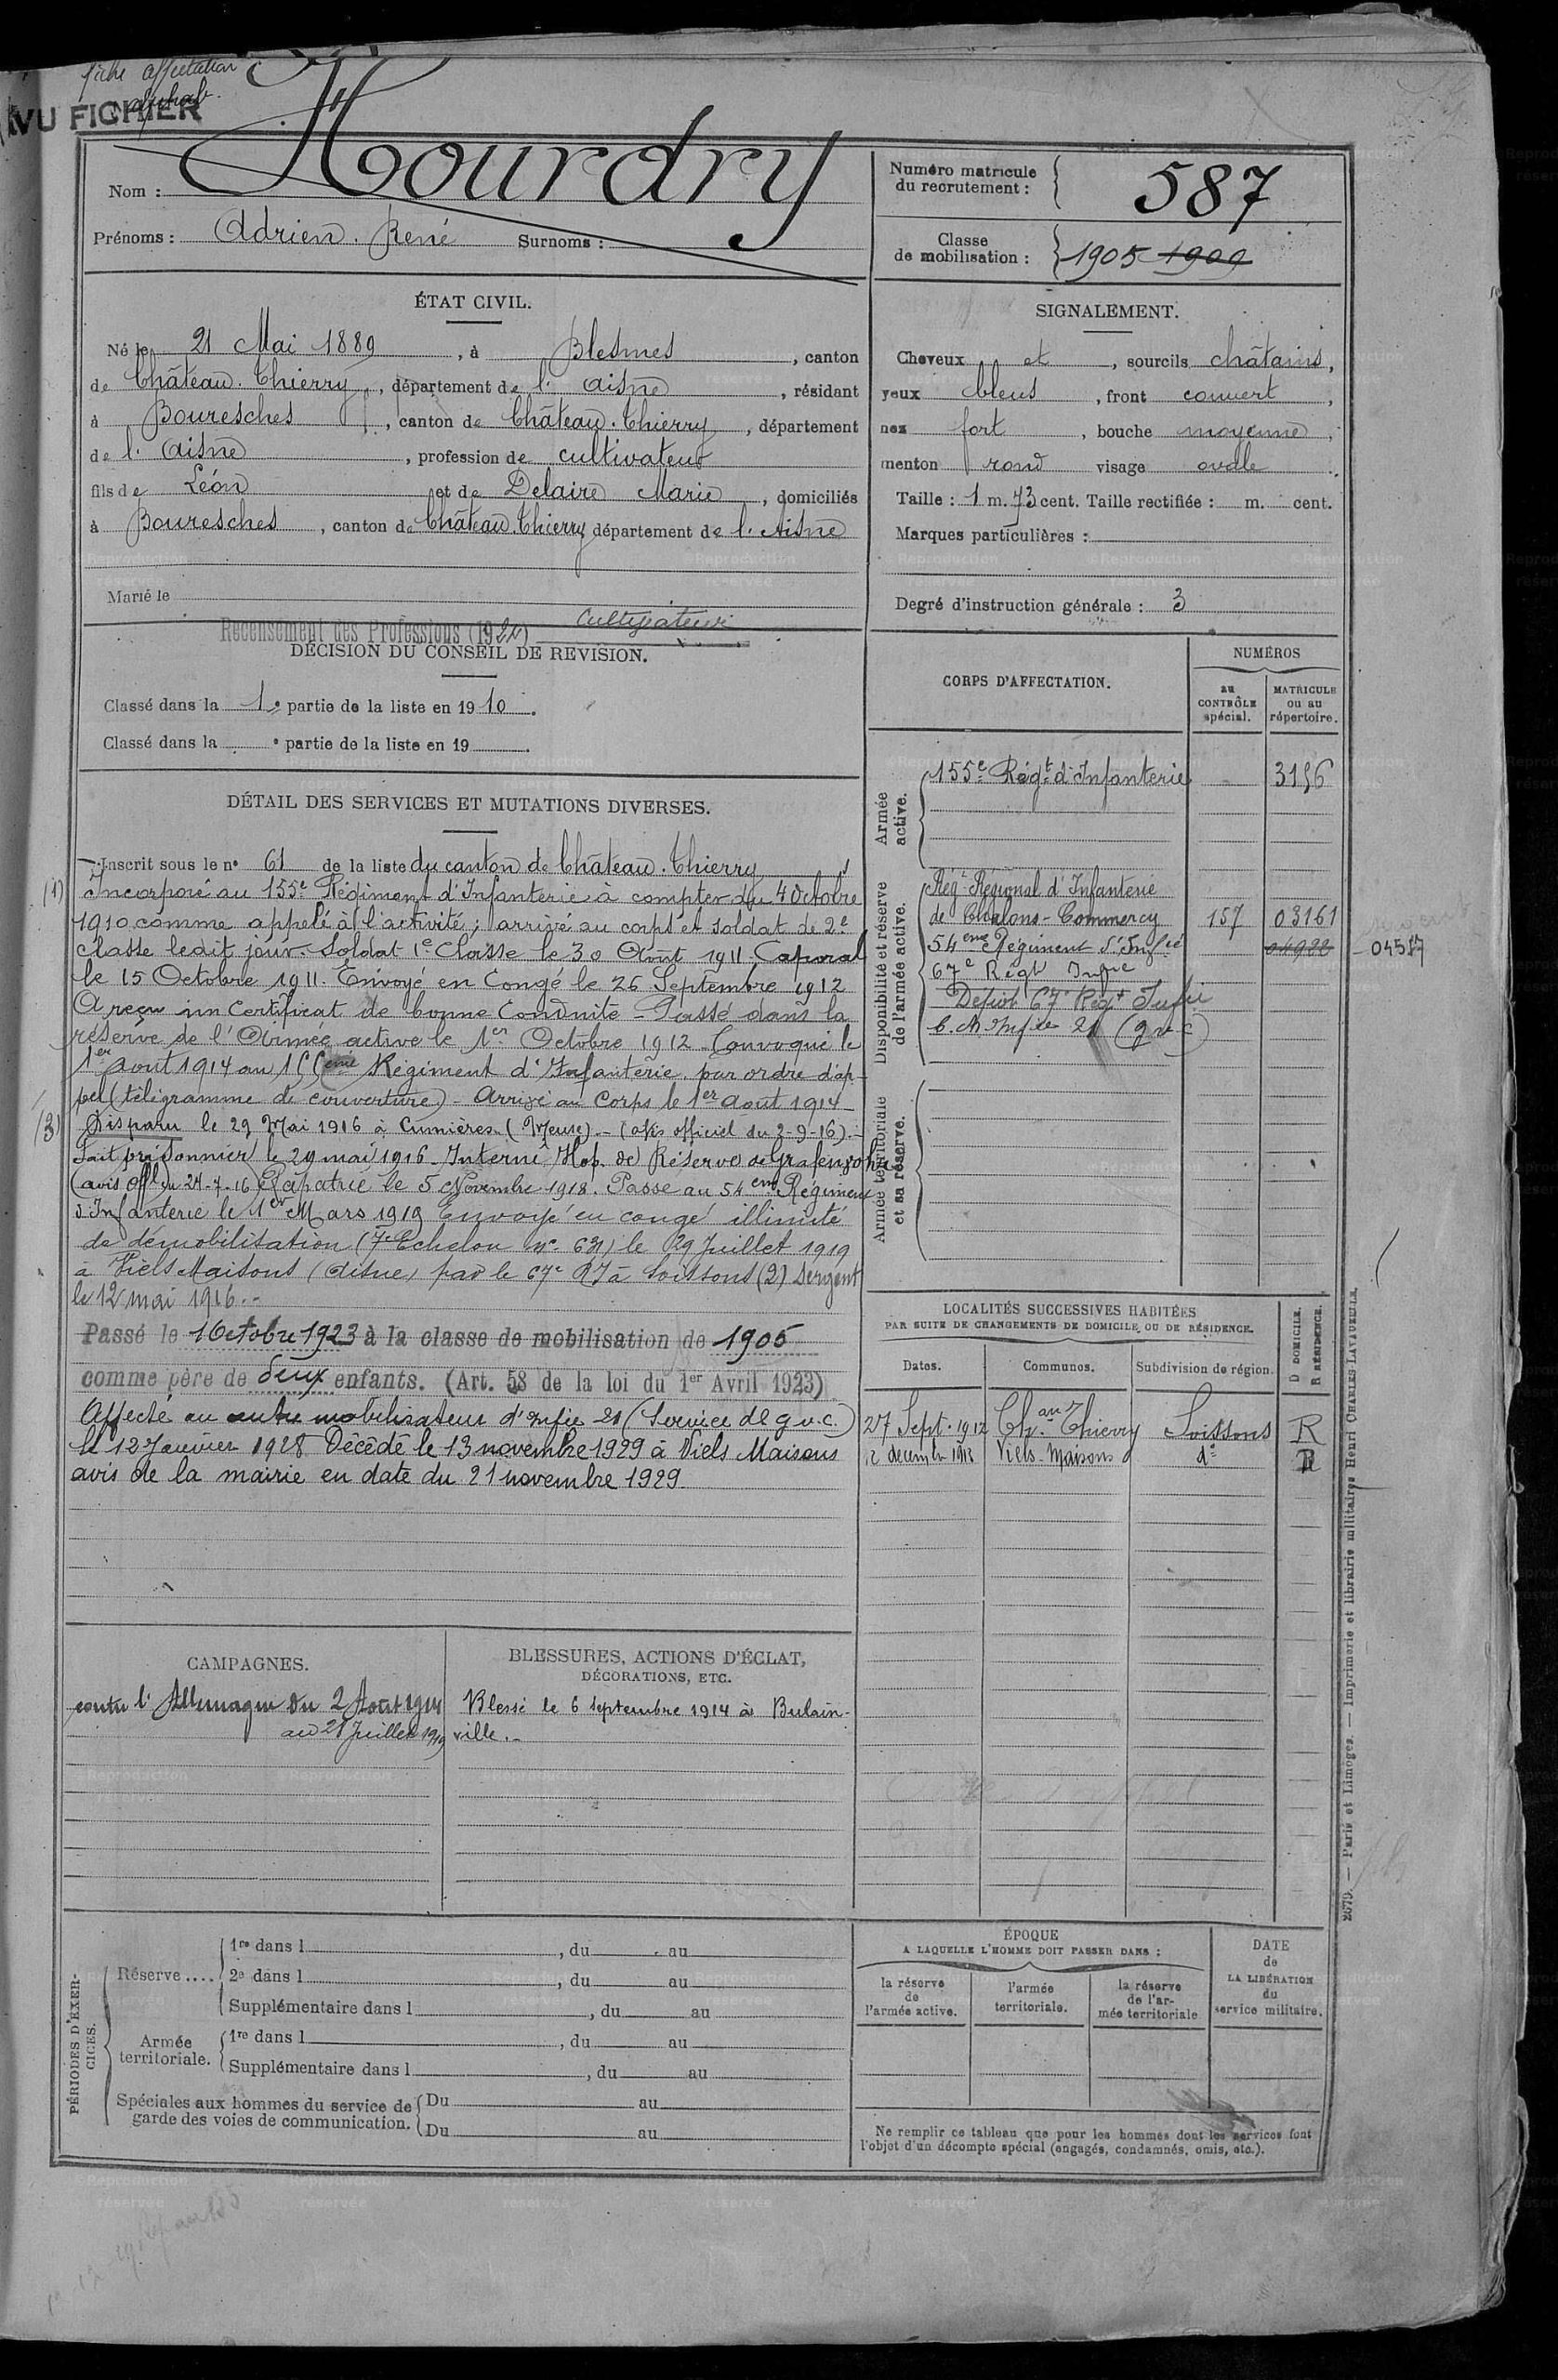 fiche affectation
VU FICHIER
Nom : Hourdry
Prénoms : Adrien. René Surnoms :
Numéro matricule
du recrutement : 587
Classe
de mobilisation : 1905 1909
ÉTAT CIVIL.
Né le 21 Mai 1889, à Blesmes, canton
de Château. Thierry, département de l'Aisne, résidant
à Bouresches, canton de Château. Thierry, département
de l'Aisne, profession de cultivateur
fils de Léon et de Delaire Marie, domiciliés
à Bouresches, canton de Château. Thierry département de l'Aisne
Marié le
Recensement des Professions (1922) Cultivateur
SIGNALEMENT.
Cheveux et, sourcils châtains,
yeux bleus, front couvert,
nez fort, bouche moyenne,
menton rond visage ovale
Taille : 1 m. 73 cent. Taille rectifiée : m. cent.
Marques particulières :
Degré d'instruction générale : 3
DÉCISION DU CONSEIL DE REVISION.
Classé dans la 1e partie de la liste en 1910.
Classé dans la e partie de la liste en 19 .
DÉTAIL DES SERVICES ET MUTATIONS DIVERSES.
Inscrit sous le n° 61 de la liste du canton de Château. Thierry
(1) Incorporé au 155e Régiment d'Infanterie à compter du 4 Octobre
1910 comme appelé à l'activité ; arrivé au corps et soldat de 2e
classe ledit jour. Soldat 1e Classe le 30 Août 1911 Caporal
le 15 Octobre 1911. Envoyé en Congé le 26 Septembre 1912
A reçu un certificat de bonne Conduite - Passé dans la
réserve de l'Armée active le 1er Octobre 1912. Convoqué le
1er août 1914 au 155eme Régiment d'Infanterie par ordre d'ap-
pel (télégramme de couverture) - Arrivé au Corps le 1er août 1914
(3) Disparu le 29 Mai 1916 à Cumières (Meuse). - (avis officiel du 2-9-16). -
Fait prisonnier le 29 mai 1916. Interné Hop. de Réserve de Grafenwohr
(avis offl du 24-7-16) Rapatrié le 5 Novembre 1918. Passé au 54eme Régiment
d'Infanterie le 1er Mars 1919 Envoyé en congé illimité
de démobilisation (7e Echelon n° 631) le 29 Juillet 1919
à Viels Maisons (Aisne) par le 67e RI à Soissons (2) Sergent
le 12 mai 1916. -
Passé le 1 Octobre 1923 à la classe de mobilisation de 1905
comme père de deux enfants. (Art. 58 de la loi du 1er Avril 1923)
Affecté au centre mobilisateur d'Infie 21 (Service de g.v.c.)
le 12 Janvier 1928 Décédé le 13 novembre 1929 à Viels Maisons
avis de la mairie en date du 21 novembre 1929
CORPS D'AFFECTATION.
NUMÉROS
au
CONTRÔLE
spécial.
MATRICULE
ou au
répertoire.
Armée
active.
155e Régt d'Infanterie 3156
Disponibilité et réserve
de l'armée active.
Régt Régional d'Infanterie
de Chalons - Commercy 157 03161
54eme Régiment d'Infie 04922 04517
67e Régt Infie
Dépôt 67e Régt Infie
C. M Infie 21 (g v c)
Armée territoriale
et sa réserve.
LOCALITÉS SUCCESSIVES HABITÉES
PAR SUITE DE CHANGEMENTS DE DOMICILE OU DE RÉSIDENCE.
Dates. Communes. Subdivision de région. D DOMICILE. R RÉSIDENCE.
27 Sept. 1912 Chau Thierry Soissons R
12 décembre 1913 Viels-Maisons do R
CAMPAGNES.
contre l'Allemagne du 2 Août 1914
au 28 Juillet 1919
BLESSURES, ACTIONS D'ÉCLAT,
DÉCORATIONS, ETC.
Blessé le 6 septembre 1914 à Bulain-
ville. -
PÉRIODES D'EXER-
CICES.
Réserve .... 1re dans l , du au
2e dans l , du au
Supplémentaire dans l , du au
Armée
territoriale. 1re dans l , du au
Supplémentaire dans l , du au
Spéciales aux hommes du service de
garde des voies de communication. Du au
Du au
ÉPOQUE
A LAQUELLE L'HOMME DOIT PASSER DANS :
la réserve
de
l'armée active.
l'armée
territoriale.
la réserve
de l'ar-
mée territoriale
DATE
de
LA LIBÉRATION
du
service militaire.
Ne remplir ce tableau que pour les hommes dont les services font
l'objet d'un décompte spécial (engagés, condamnés, omis, etc.).
2679. — Paris et Limoges. — Imprimerie et librairie militaires Henri CHARLES-LAVAUZELLE.